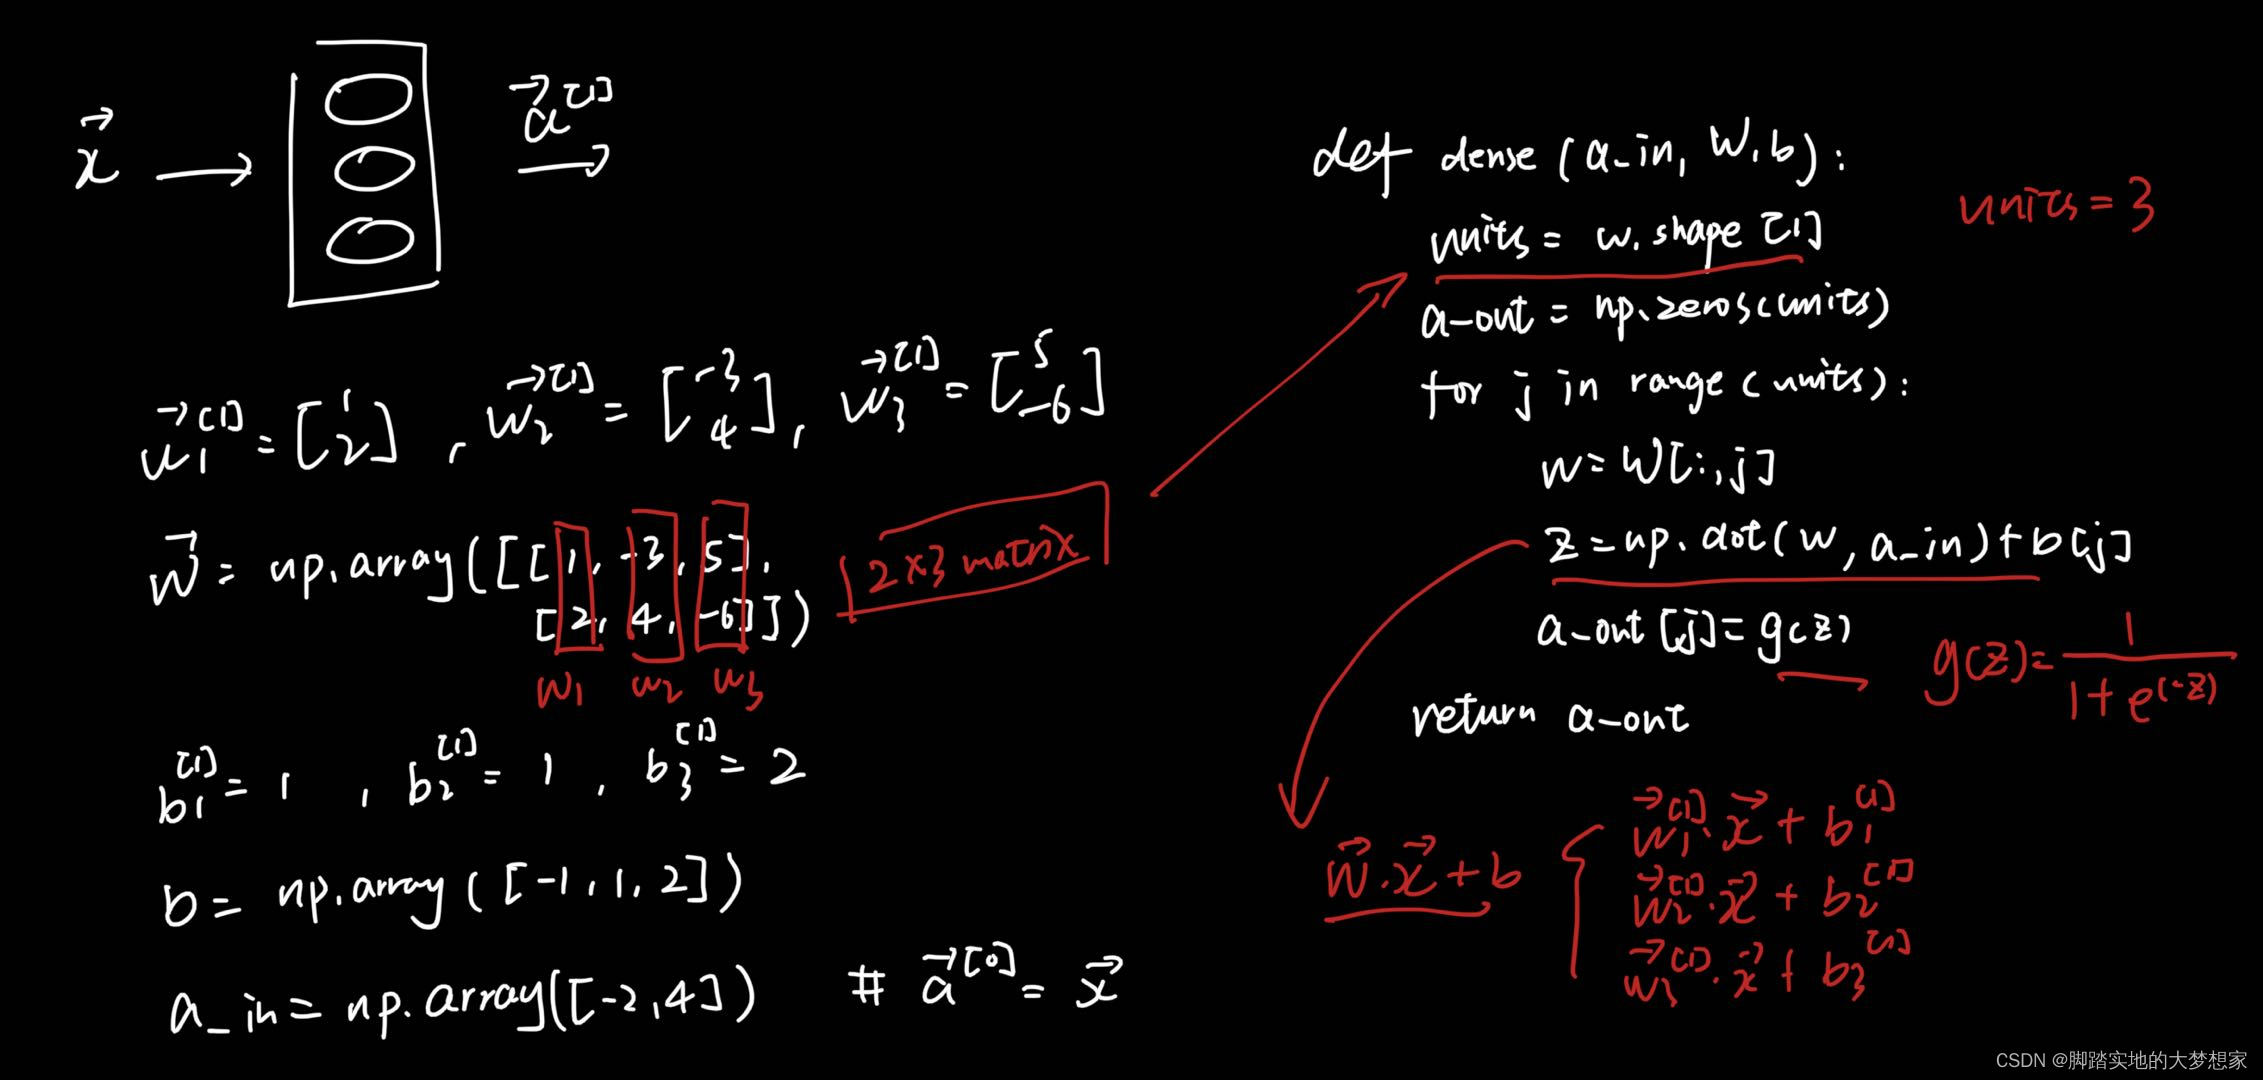 x⃗ → a⃗^[1] →
w⃗₁^[1] = [1 2], w⃗₂^[1] = [-3 4], w⃗₃^[1] = [5 -6]
w⃗ = np.array([[1, -3, 5],
[2, 4, -6]])
2×3 matrix
w₁ w₂ w₃
b₁^[1] = 1, b₂^[1] = 1, b₃^[1] = 2
b = np.array([-1, 1, 2])
a_in = np.array([-2, 4]) # a⃗^[0] = x⃗
def dense(a_in, W, b):
units = w.shape[1]
units = 3
a-out = np.zeros(units)
for j in range(units):
w = W[:,j]
z = np.dot(w, a_in)+b[j]
a-out[j] = g(z)
g(z) = 1/(1+e^(-z))
return a-out
w⃗·x⃗+b
w⃗₁^[1]·x⃗ + b₁^[1]
w⃗₂^[1]·x⃗ + b₂^[1]
w⃗₃^[1]·x⃗ + b₃^[1]
CSDN @脚踏实地的大梦想家